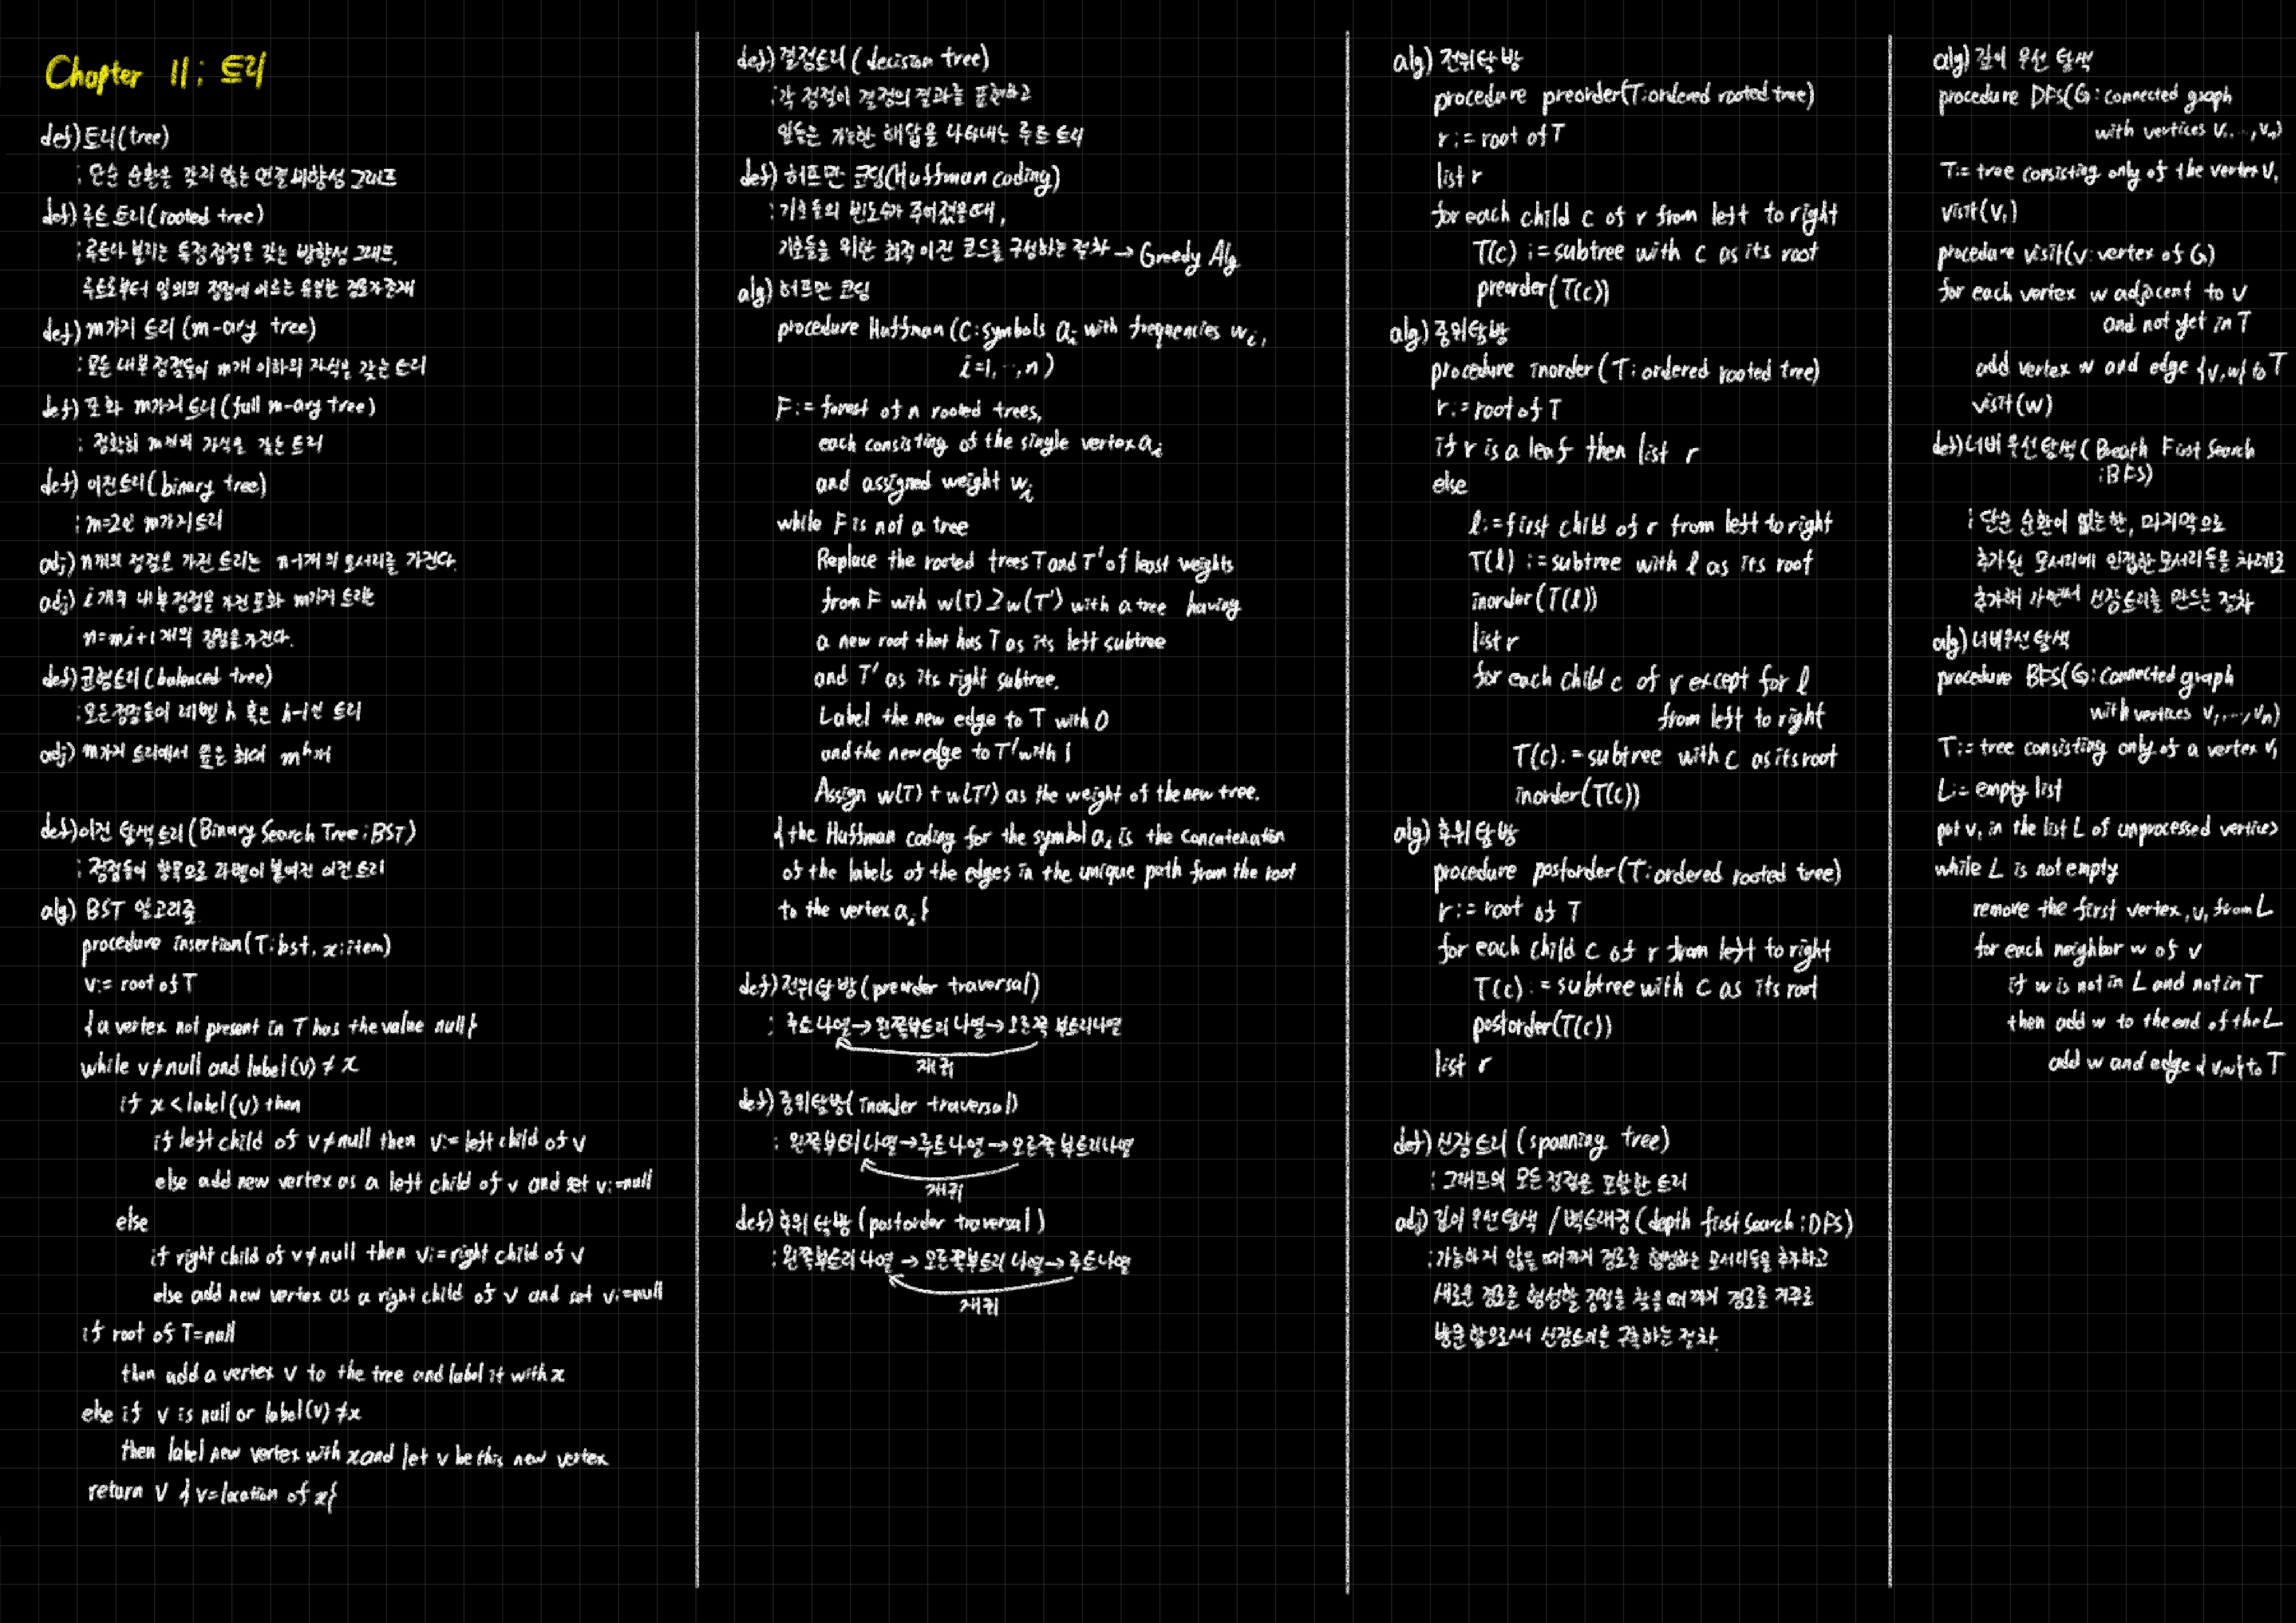 Chapter 11: 트리
def) 트리(tree)
: 단순 순환을 갖지 않는 연결 비방향성 그래프
def) 루트 트리(rooted tree)
: 루트라 불리는 특정 정점을 갖는 방향성 그래프,
루트로부터 임의의 정점에 이르는 유일한 경로가 존재
def) m가지 트리 (m-ary tree)
: 모든 내부 정점들이 m개 이하의 자식을 갖는 트리
def) 포화 m가지 트리(full m-ary tree)
: 정확히 m개의 자식을 갖는 트리
def) 이진트리(binary tree)
: m=2인 m가지 트리
adj) n개의 정점을 가진 트리는 n-1개의 모서리를 가진다.
adj) i개의 내부 정점을 가진 포화 m가지 트리는
n=mi+1개의 정점을 가진다.
def) 균형트리(balanced tree)
: 모든 정점들이 레벨 h 혹은 h-1인 트리
adj) m가지 트리에서 잎은 최대 m^h개
def) 이진 탐색 트리(Binary Search Tree: BST)
: 정점들이 항목으로 라벨이 붙여진 이진 트리
alg) BST 알고리즘
procedure insertion(T:bst, x:item)
v:= root of T
{a vertex not present in T has the value null}
while v≠null and label(v) ≠ x
if x < label(v) then
if left child of v≠null then v:= left child of v
else add new vertex as a left child of v and set v:=null
else
if right child of v≠null then v:=right child of v
else add new vertex as a right child of v and set v:=null
if root of T=null
then add a vertex v to the tree and label it with x
else if v is null or label(v) ≠x
then label new vertex with x and let v be this new vertex
return v {v=location of x}
def) 결정트리 (decision tree)
: 각 정점이 결정의 결과를 표현하고
잎들은 가능한 해답을 나타내는 루트 트리
def) 허프만 코딩(Huffman coding)
: 기호들의 빈도수가 주어졌을때,
기호들을 위한 최적 이진 코드를 구성하는 절차 → Greedy Alg
alg) 허프만 코딩
procedure Huffman (C:symbols a_i with frequencies w_i,
i=1, ..., n)
F:= forest of n rooted trees,
each consisting of the single vertex a_i
and assigned weight w_i
while F is not a tree
Replace the rooted trees T and T' of least weights
from F with w(T) ≥ w(T') with a tree having
a new root that has T as its left subtree
and T' as its right subtree.
Label the new edge to T with 0
and the new edge to T' with 1
Assign w(T) + w(T') as the weight of the new tree.
{the Huffman coding for the symbol a_i is the concatenation
of the labels of the edges in the unique path from the root
to the vertex a_i}
def) 전위탐방 (preorder traversal)
: 루트나열 → 왼쪽부트리 나열 → 오른쪽 부트리나열
재귀
def) 중위탐방(inorder traversal)
: 왼쪽부트리 나열 → 루트 나열 → 오른쪽 부트리나열
재귀
def) 후위 탐방 (postorder traversal)
: 왼쪽부트리 나열 → 오른쪽부트리 나열 → 루트나열
재귀
alg) 전위탐방
procedure preorder(T:ordered rooted tree)
r:= root of T
list r
for each child c of r from left to right
T(c) := subtree with c as its root
preorder(T(c))
alg) 중위탐방
procedure inorder (T: ordered rooted tree)
r:= root of T
if r is a leaf then list r
else
l:=first child of r from left to right
T(l) := subtree with l as its root
inorder(T(l))
list r
for each child c of r except for l
from left to right
T(c):=subtree with c as its root
inorder(T(c))
alg) 후위탐방
procedure postorder(T:ordered rooted tree)
r:= root of T
for each child c of r from left to right
T(c) := subtree with c as its root
postorder(T(c))
list r
def) 신장트리 (spanning tree)
: 그래프의 모든 정점을 포함한 트리
adj) 깊이 우선 탐색 / 백트래킹 (depth first search : DFS)
: 가능하지 않을 때까지 경로를 형성하는 모서리들을 추가하고
새로운 경로를 형성할 정점을 찾을 때 까지 경로를 거꾸로
방문함으로써 신장트리를 구축하는 절차.
alg) 깊이 우선 탐색
procedure DFS(G:connected graph
with vertices v₁, ..., vₙ)
T:= tree consisting only of the vertex v₁
visit(v₁)
procedure visit(v:vertex of G)
for each vertex w adjacent to v
and not yet in T
add vertex w and edge {v,w} to T
visit(w)
def) 너비 우선 탐색 (Breath First Search
:BFS)
: 단순 순환이 없는한, 마지막으로
추가된 모서리에 인접한 모서리들을 차례로
추가해 가면서 신장트리를 만드는 절차
alg) 너비우선탐색
procedure BFS(G: connected graph
with vertices v₁, ..., vₙ)
T:= tree consisting only of a vertex v₁
L:= empty list
put v₁ in the list L of unprocessed vertices
while L is not empty
remove the first vertex, v, from L
for each neighbor w of v
if w is not in L and not in T
then add w to the end of the L
add w and edge {v,w} to T